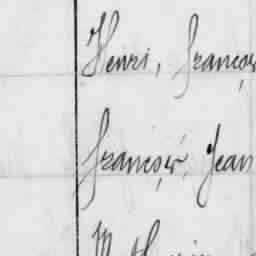 Henri, françois
françois, Jean
Mathurin